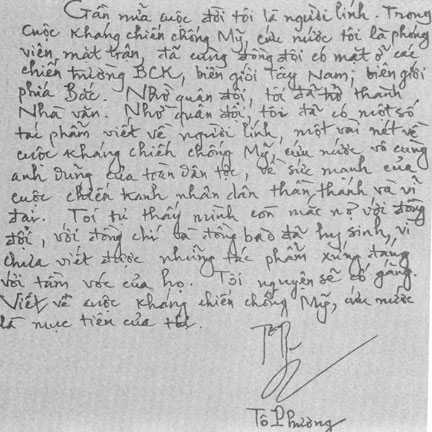 Gần nửa cuộc đời tôi là người lính. Trong
cuộc kháng chiến chống Mỹ, cứu nước tôi là phóng
viên mặt trận, đã cùng đồng đội có mặt ở các
chiến trường BCK, biên giới Tây Nam; biên giới
phía Bắc. Nhờ quân đội, tôi đã trở thành
Nhà văn. Nhờ quân đội, tôi đã có một số
tác phẩm viết về người lính, một vài nét về
cuộc kháng chiến chống Mỹ, cứu nước vô cùng
anh dũng của toàn dân tộc, về sức mạnh của
cuộc chiến tranh nhân dân thần thánh và vĩ
đại. Tôi tự thấy mình còn mắc nợ với đồng
đội, với đồng chí và đồng bào đã hy sinh, vì
chưa viết được những tác phẩm xứng đáng
với tầm vóc của họ. Tôi nguyện sẽ cố gắng.
Viết về cuộc kháng chiến chống Mỹ, cứu nước
là mục tiêu của tôi.
Tô Phương